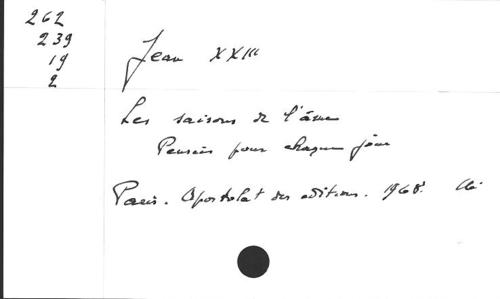 262
239
19
2
Jean XXIII
Les saisons de l'âme
Pensées pour chaque jour
Paris. Apostolat des éditions. 1968.